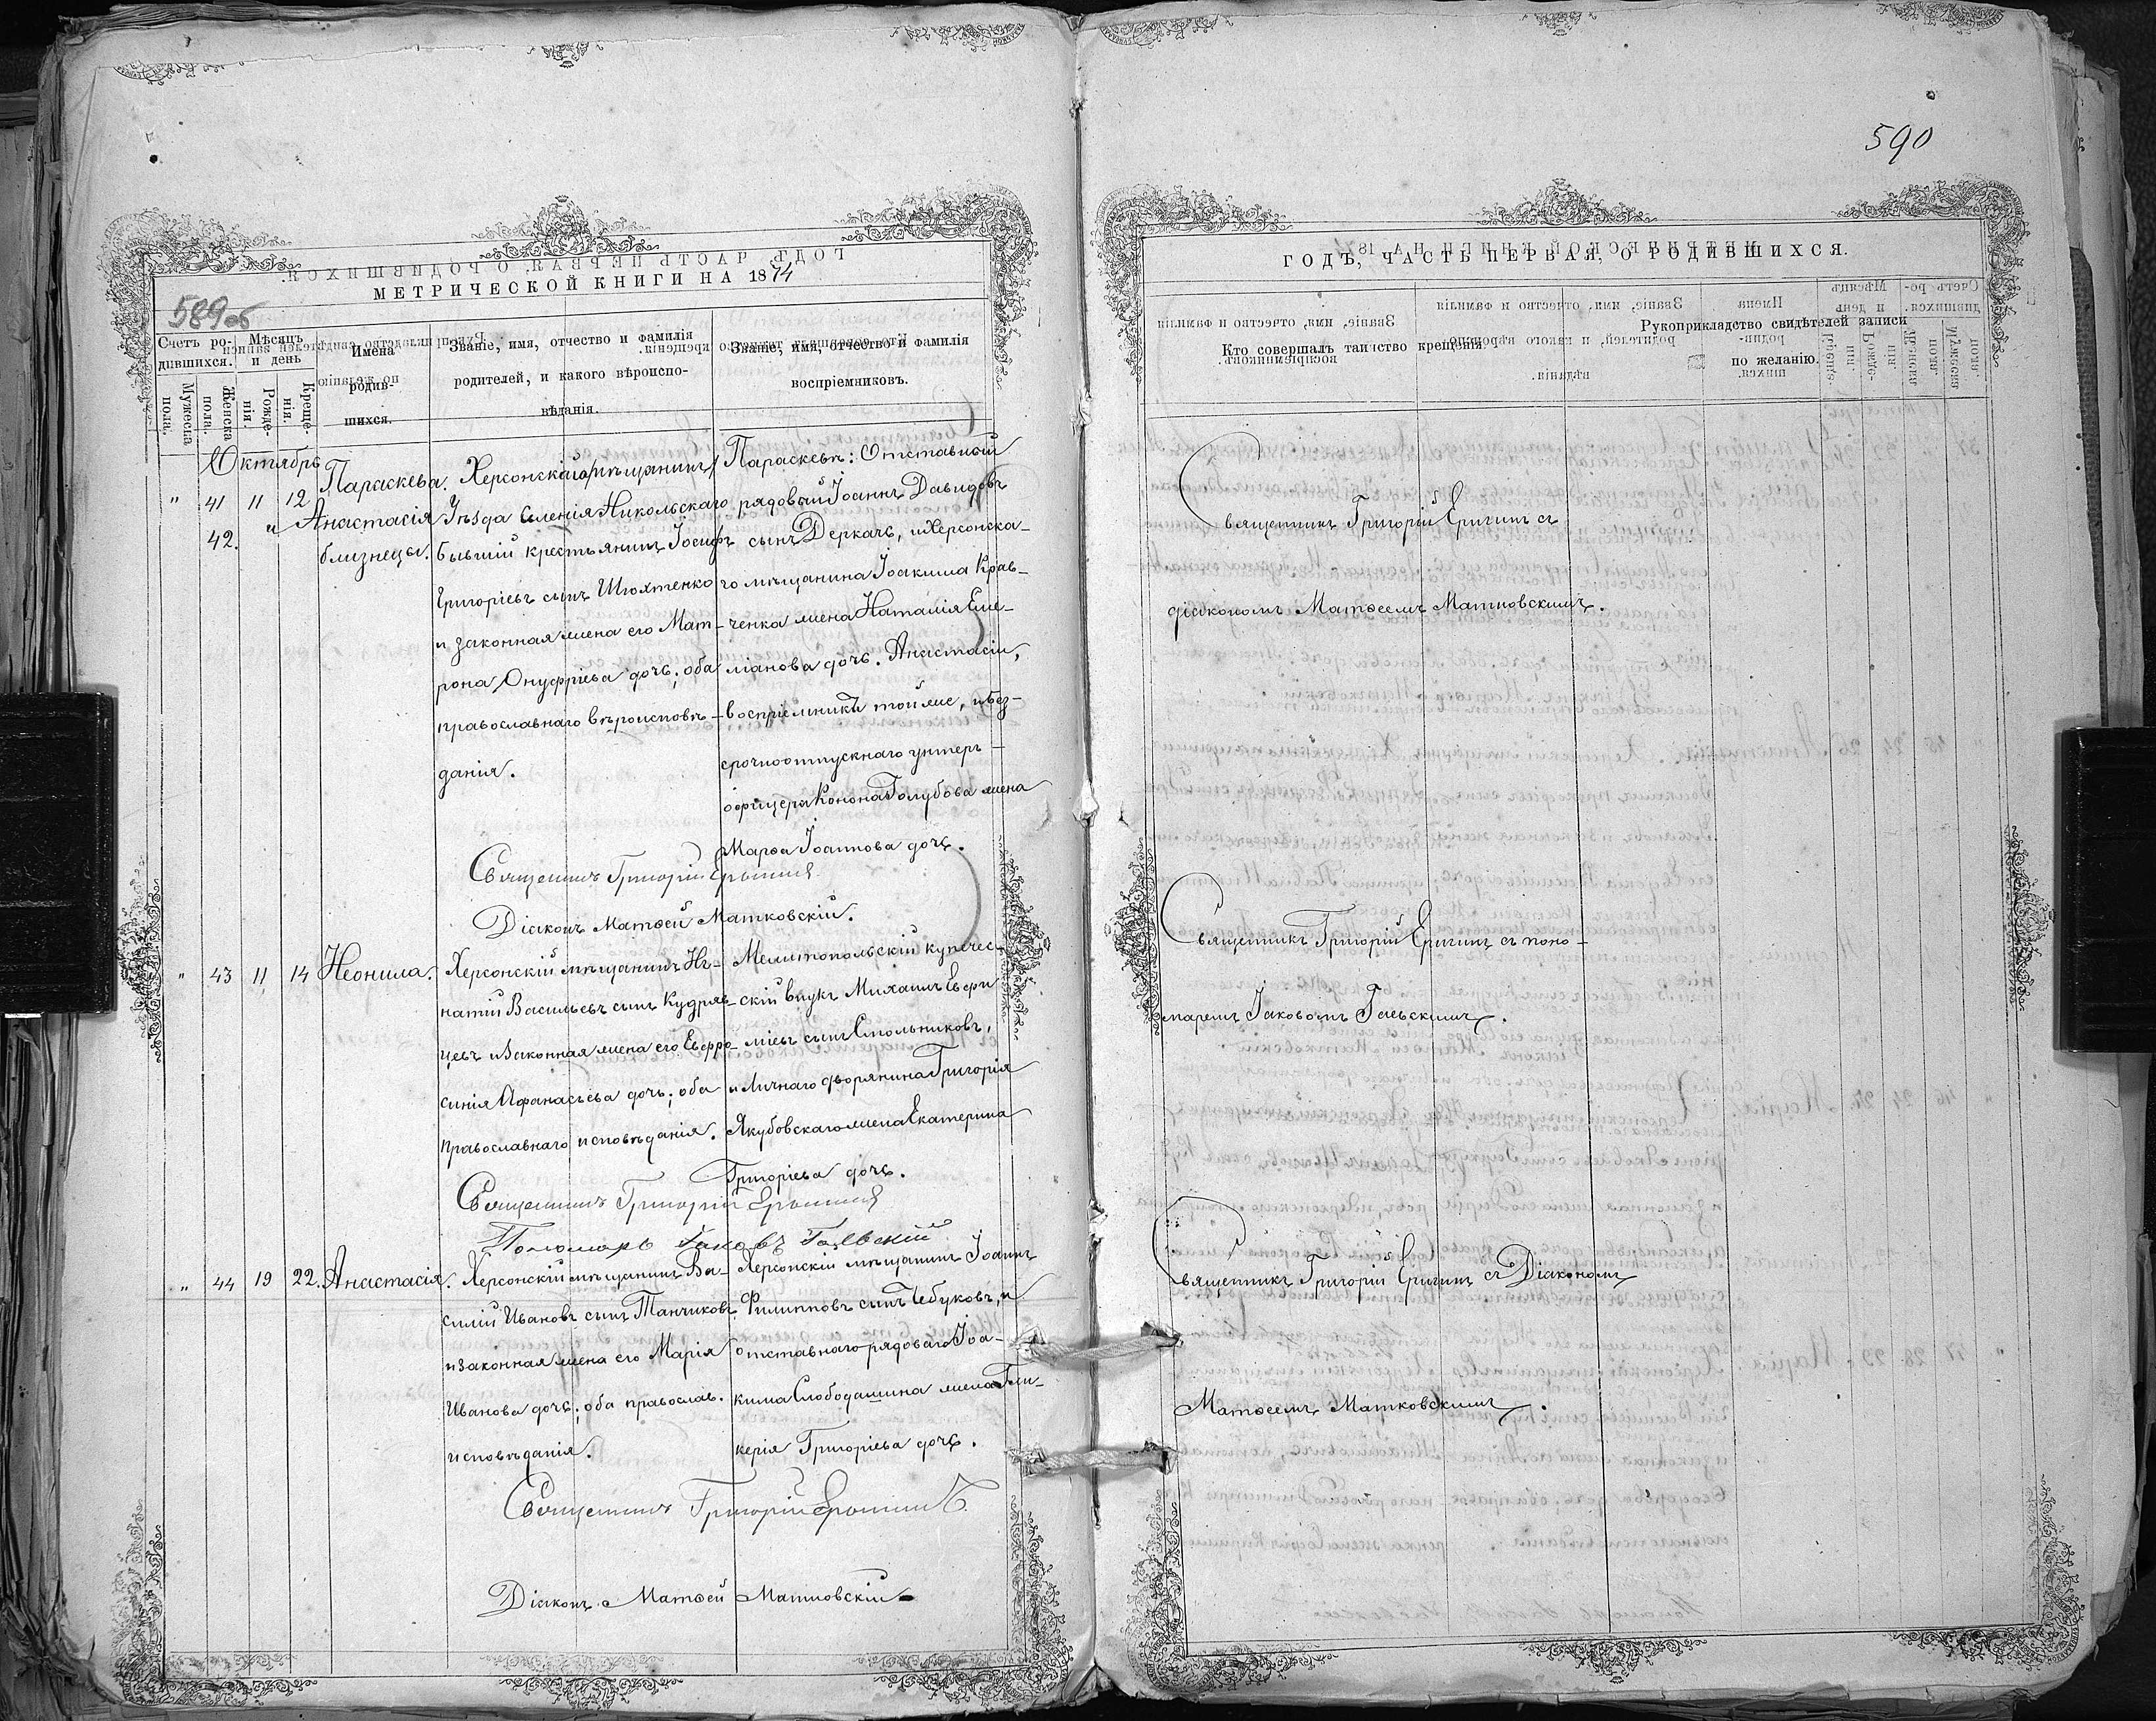 590
МЕТРИЧЕСКОЙ КНИГИ НА 1874
589об
Счетъ ро-
дившихся.
Мужеска
пола.
Женска
пола.
Мѣсяцъ
и день
Рожде-
нія
Креще-
нія.
Имена
родив-
шихся.
Званіе, имя, отчество и фамилія
родителей, и какого вѣроиспо-
вѣданія.
Званіе, имя, отчество и фамилія
воспріемниковъ.
Октябрь
" 41 11 12
42.
Параскева.
и Анастасія
близнецы.
Херсонскаго
Уѣзда Селенія Никольскаго
бывшій крестьянинъ Іосифъ
Григоріевъ сынъ Шюхтенко
и законная жена его Мат-
рона Онуфріева дочь; оба
православнаго вѣроисповѣ-
данія.
Параскевѣ: Отставной
рядовый Іоаннъ Давидовъ
сынъ Деркачъ, и Херсонска-
го мѣщанина Іоакима Крав-
ченка жена Наталія Еме-
ліанова дочь. Анастасіи,
воспріемники тойже, и без-
срочноотпускнаго унтеръ-
офицера Конона Голубова жена
Марѳа Іоаннова дочь.
Священникъ Григорій Еригинъ
Діаконъ Матѳей Матковскій.
" 43 11 14 Неонила.
Херсонскій мѣщанинъ Иг-
натій Васильевъ сынъ Кудряв-
цевъ и законная жена его Евфро-
синія Аѳанасьева дочь; оба
православнаго исповѣданія.
Мелитопольскій купечес-
скій внукъ Михаилъ Евфи
міевъ сынъ Смольниковъ,
и Личнаго дворянина Григорія
Якубовскаго жена Екатерина
Григоріева дочь.
Священникъ Григорій Еригинъ
Пономарь Іаковъ Гаевскій
" 44 19 22. Анастасія.
Херсонскій мѣщанинъ Ва-
силій Ивановъ сынъ Танчиковъ
и законная жена его Марія
Иванова дочь; оба православ.
исповѣданія.
Херсонскій мѣщанинъ Іоаннъ
Филипповъ сынъ Чебуковъ, и
отставнаго рядоваго Іоа-
кима Слободашина жена Гли-
керія Григоріева дочь.
Священникъ Григорій Еригинъ
Діаконъ Матѳей Матковскій
ГОДЪ, ЧАСТЬ ПЕРВАЯ, О РОДИВШИХСЯ.
Кто совершалъ таинство крещенія.
Рукоприкладство свидѣтелей записи
по желанію.
Священникъ Григорій Еригинъ съ
діакономъ Матѳеемъ Матковскимъ.
Священникъ Григорій Еригинъ съ поно-
маремъ Іаковомъ Гаевскимъ.
Священникъ Григорій Еригинъ съ Діакономъ
Матѳеемъ Матковскимъ.